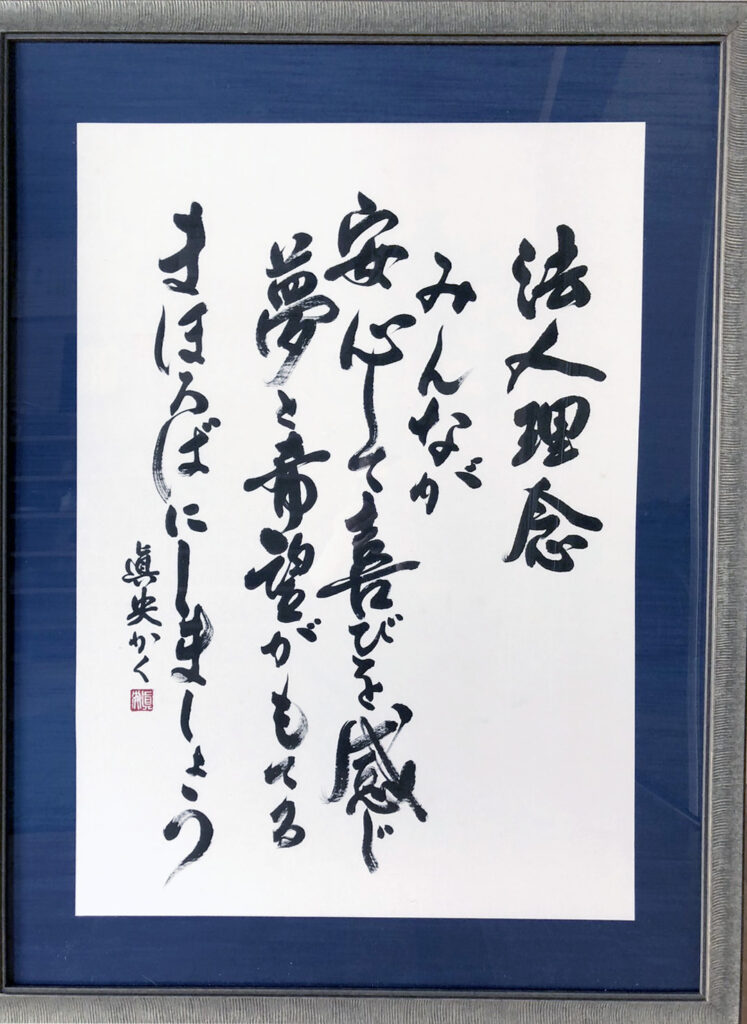 法人理念
みんなが
安心して喜びを感じ
夢と希望がもてる
まほろばにしましょう
眞央かく